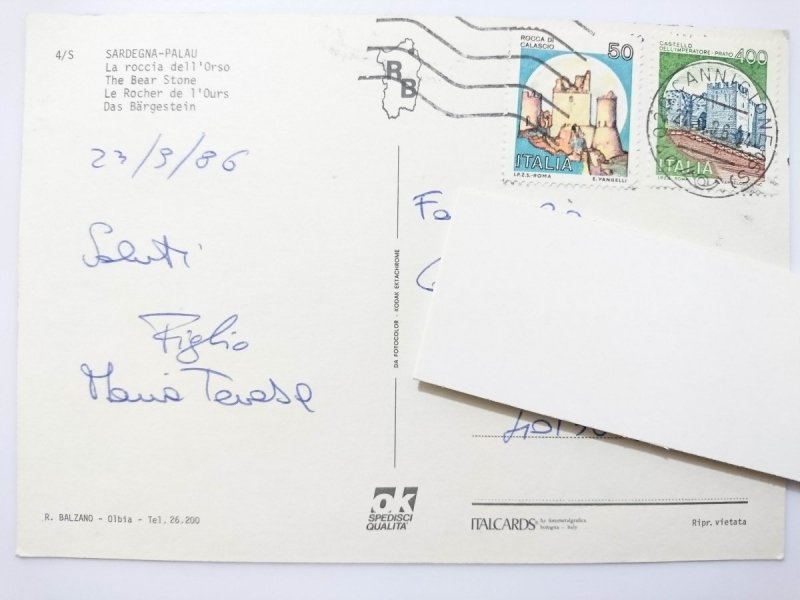 4/S SARDEGNA-PALAU
La roccia dell'Orso
The Bear Stone
Le Rocher de l'Ours
Das Bärgestein
23/9/86
Saluti
Figlio
Maria Teresa
R. BALZANO - Olbia - Tel. 26.200
DA FOTOCOLOR - KODAK EKTACHROME
ok
SPEDISCI
QUALITA'
RB
ROCCA DI
CALASCIO
50
ITALIA
I.P.Z.S.-ROMA E. VANGELLI
CASTELLO
DELL'IMPERATORE-PRATO
400
ITALIA
CANNIGIONE
ITALCARDS by fotometalgrafica
bologna - Italy
Ripr. vietata